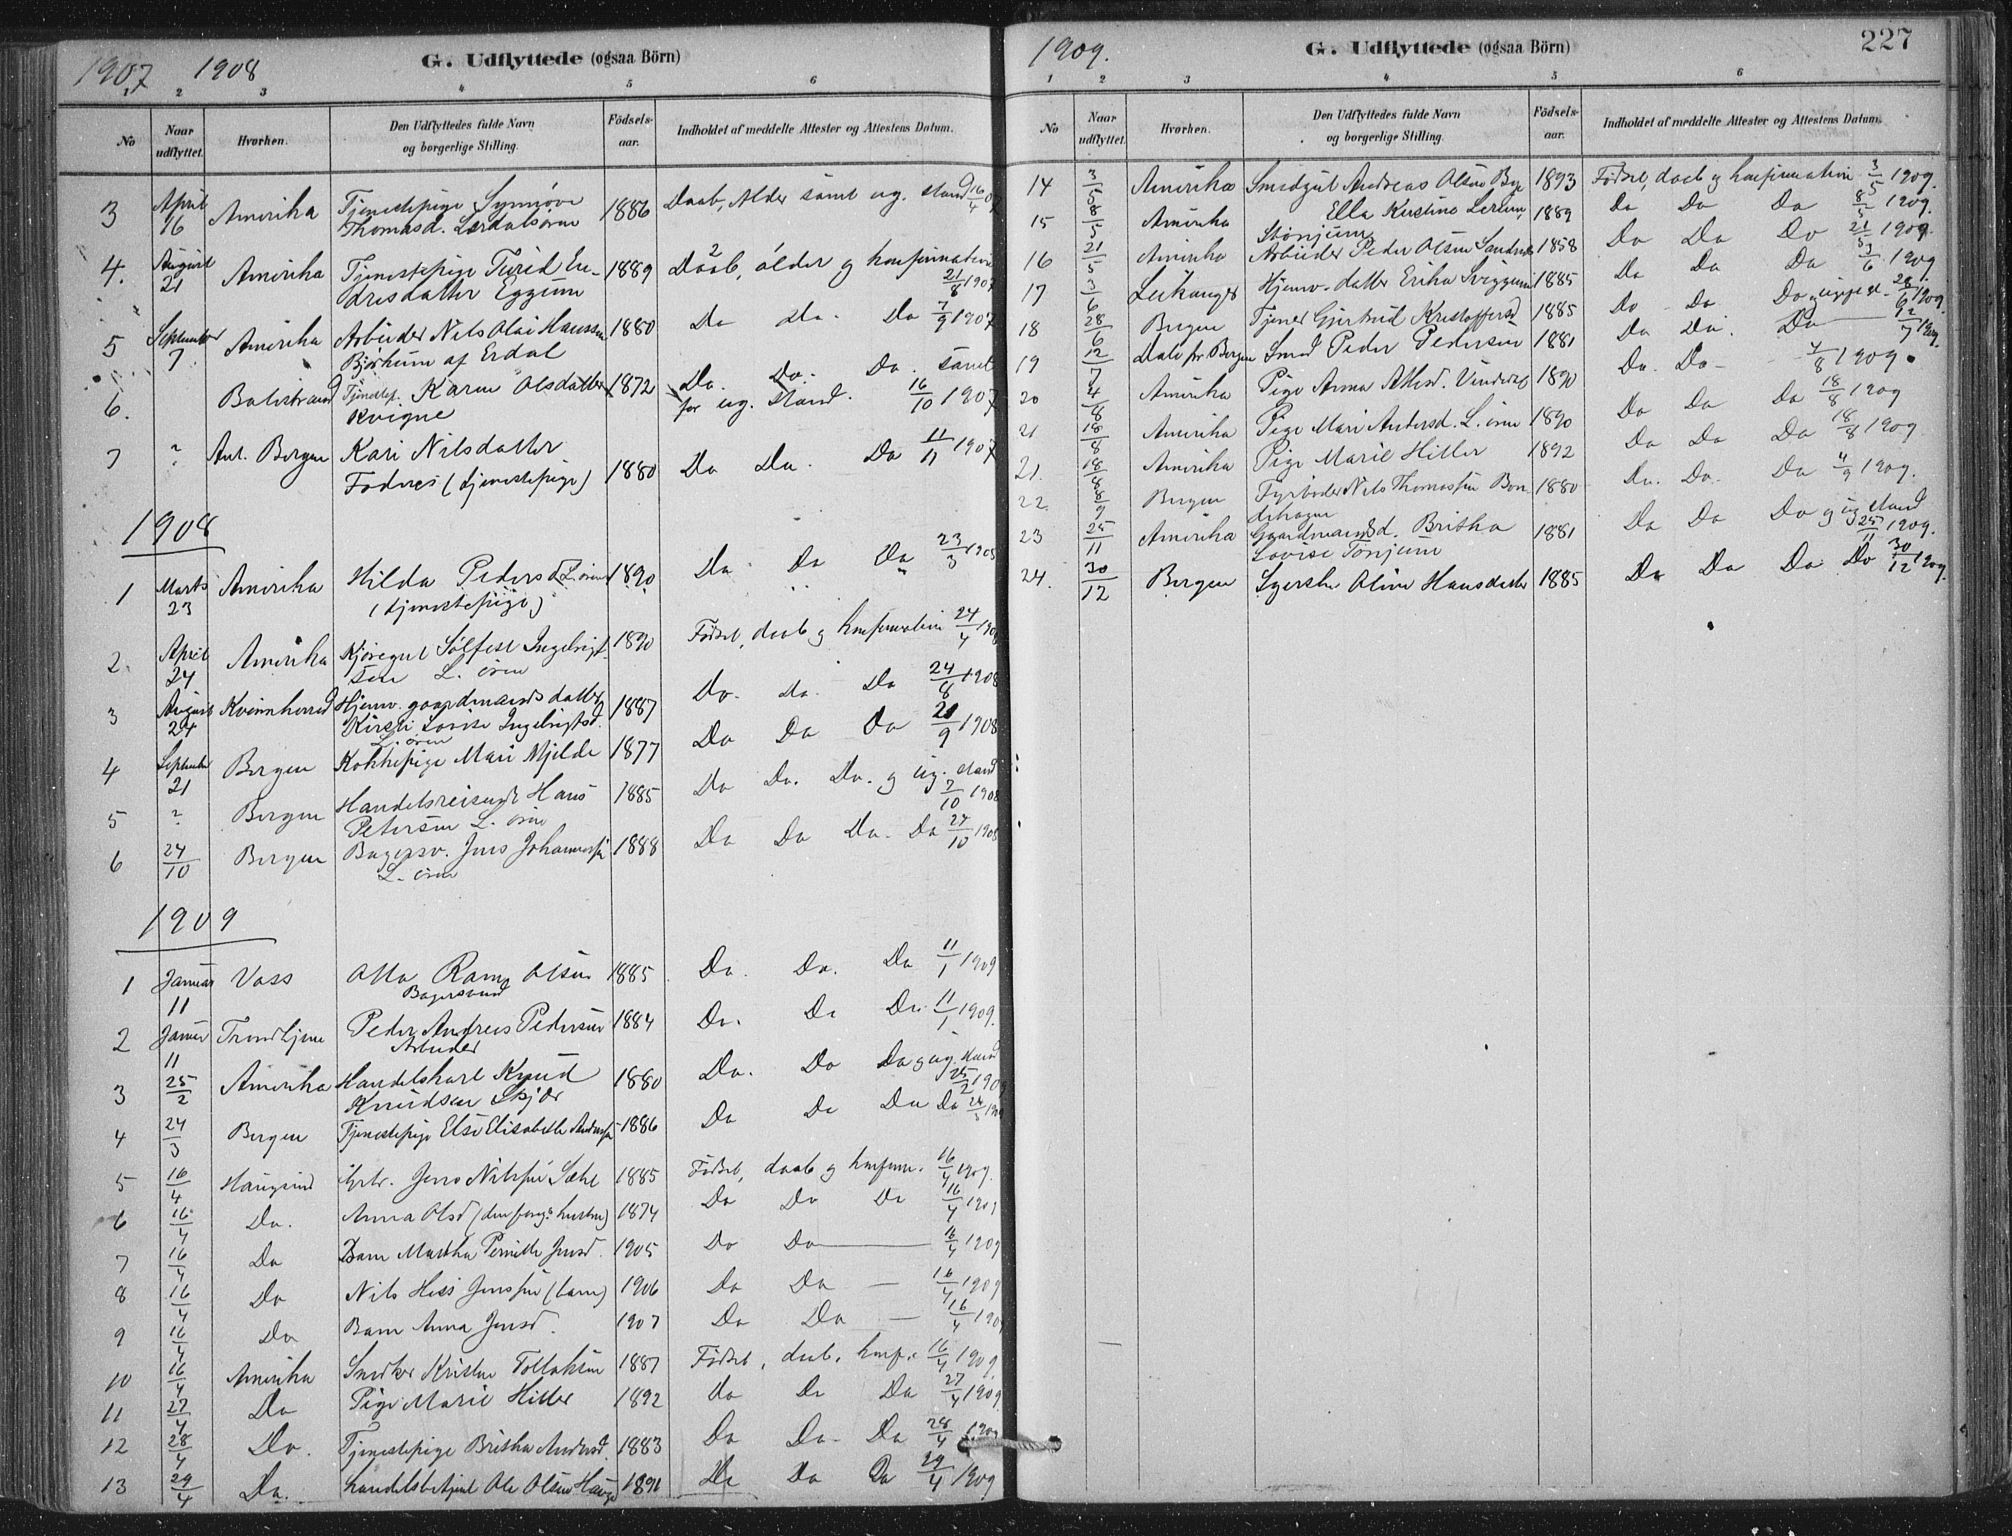 1907 1908
G. Udflyttede (ogsaa Börn)
1 2 3 4 5 6
No
Naar udflyttet.
Hvorhen.
Den Udflyttedes fulde Navn og borgerlige Stilling.
Födsels-aar.
Indholdet af meddelte Attester og Attestens Datum.
3 April 16 Amerika Tjenestepige Synnöve 1886 Daab, Alder samt ug. stand 16/4 07
Thomasd. Lærdalsören
4. August 21 Amerika Tjenestepige Turid En- 1889 Daab, alder og konfirmation
dresdatter Eggum 21/8 1907
5 September 7 Amerika Arbeider Nils Olai Hanssen 1880 Do do. Do 7/9 1907
Bjørkum af Erdal
6. Balestrand Tjenestep. Karen Olsdatter 1872 Do. Do. Do. samt
Kvigne for ug. stand. 16/10 1907
7 ? Ant. Bergen Kari Nilsdatter
Fodnes (tjenestepige) 1880 Do Do. Do 11/11 1907
1908
1 Marts 23 Amerika Hilda Pedersd. L. ören 1890 Do Do Do 23/3 1908
(tjenestepige)
2. April 24 Amerika Kjöregut Sölfest Ingebrigt- 1890 Födsel, daab og konfirmation 24/4 1908
sen L. ören
3 August 24 Kvinnherred Hjemv. gaardmands datter 1887 Do. do. Do 24/8 1908
Kirsti Lovise Ingebrigtsd.
L. ören
4 September 21 Bergen Kokkepige Mari Mjelde 1877 Do Do Do 21/9 1908
5 ? Bergen Handelsreisende Hans 1885 Do Do. Do. og ug. stand
Petersen L. ören 7/10 1908
6 24/10 Bergen Bagersv. Jens Johannessen 1888 Do Do Do. Do 24/10 1908
L. ören
1909
1 Januar 11 Voss Otto Ramm Olsen 1885 Do. Do. Do 11/1 1909
Bagersvend
2 Januar 11 Trondhjem Peder Andreas Pedersen 1884 Do. Do Do 11/1 1909.
Arbeider
3 25/2 Amerika Handelskarl Knud 1880 Do. Do Do og ug. stand
Knudsen Skjær 25/2 1909
4 24/3 Bergen Tjenestepige Else Elisabeth 1886 Do Do Do Do 24/3 1909
5 16/4 Haugesund Jens Nilssen 1885 Födsel, daab og konfirm. 16/4 1909.
6 16/4 Do. Anna Olsd (den foreg.s hustru) 1874 Do Do Do 16/4 1909
7 16/4 Do Barn Martha Pernille Jensd. 1905 Do Do 16/4 1909
8 16/4 Do Nils Jenssen (barn) 1906 Do Do — 16/4 1909
9 16/4 Do Barn Anna Jensd. 1907 Do Do — 16/4 1909
10 16/4 Amerika Snedker Kristen Tollaksen 1887 Födsel, daab, konf. 16/4 1909.
11 27/4 Do Pige Marie Hitler 1892 do Do Do 27/4 1909
12 28/4 Do. Tjenestepige Britha Andersd. 1883 Do Do Do 28/4 1909
13 29/4 Do. Handelsbetjent Ole Olsen Hauge 1891 Do Do Do 29/4 1909
1909.
G. Udflyttede (ogsaa Börn)
227
1 2 3 4 5 6
No
Naar udflyttet.
Hvorhen.
Den Udflyttedes fulde Navn og borgerlige Stilling.
Födsels-aar.
Indholdet af meddelte Attester og Attestens Datum.
14 3/5 Amerika Smedgut Andreas Olsen Bye 1893 Födsel, daab og konfirmation 3/5 1909.
15 8/5 Amerika Ella Kristine Lerum 1889 Do Do Do 8/5 1909.
Stönjum
16 21/5 Amerika Arbeider Peder Olsen 1858 Do Do Do 21/5 1909
17 3/6 Leikanger Hjemv. datter Erika Sviggum 1885 Do Do Do 3/6 1909
18 28/6 Bergen Tjener Gjertrud Kristoffersd 1885 Do Do Do og ug. st. 28/6 1909.
19 12/7 Dale pr Bergen Smed Peder Pedersen 1881 Do Do. Do 12/7 1909.
20 4/8 Amerika Pige Anna Atlesd. Vindedal 1890 Do. Do — 4/8 1909.
21 18/8 Amerika Pige Mari Andersd. L. ören 1890 Do Do Do 18/8 1909
21. 18/8 Amerika Pige Marie Hitler 1892 Do Do Do 18/8 1909.
22. 8/9 Bergen Fyrböder Nils Thomassen Bon- 1880 Do. Do. Do 4/9 1909.
dehagen
23 25/11 Amerika Gaardmandsd. Britha 1881 Do Do Do og ug stand
Lovise Tönjum 25/11 1909.
24. 30/12 Bergen Syerske Oline Hansdatter 1885 Do Do Do Do 30/12 1909.